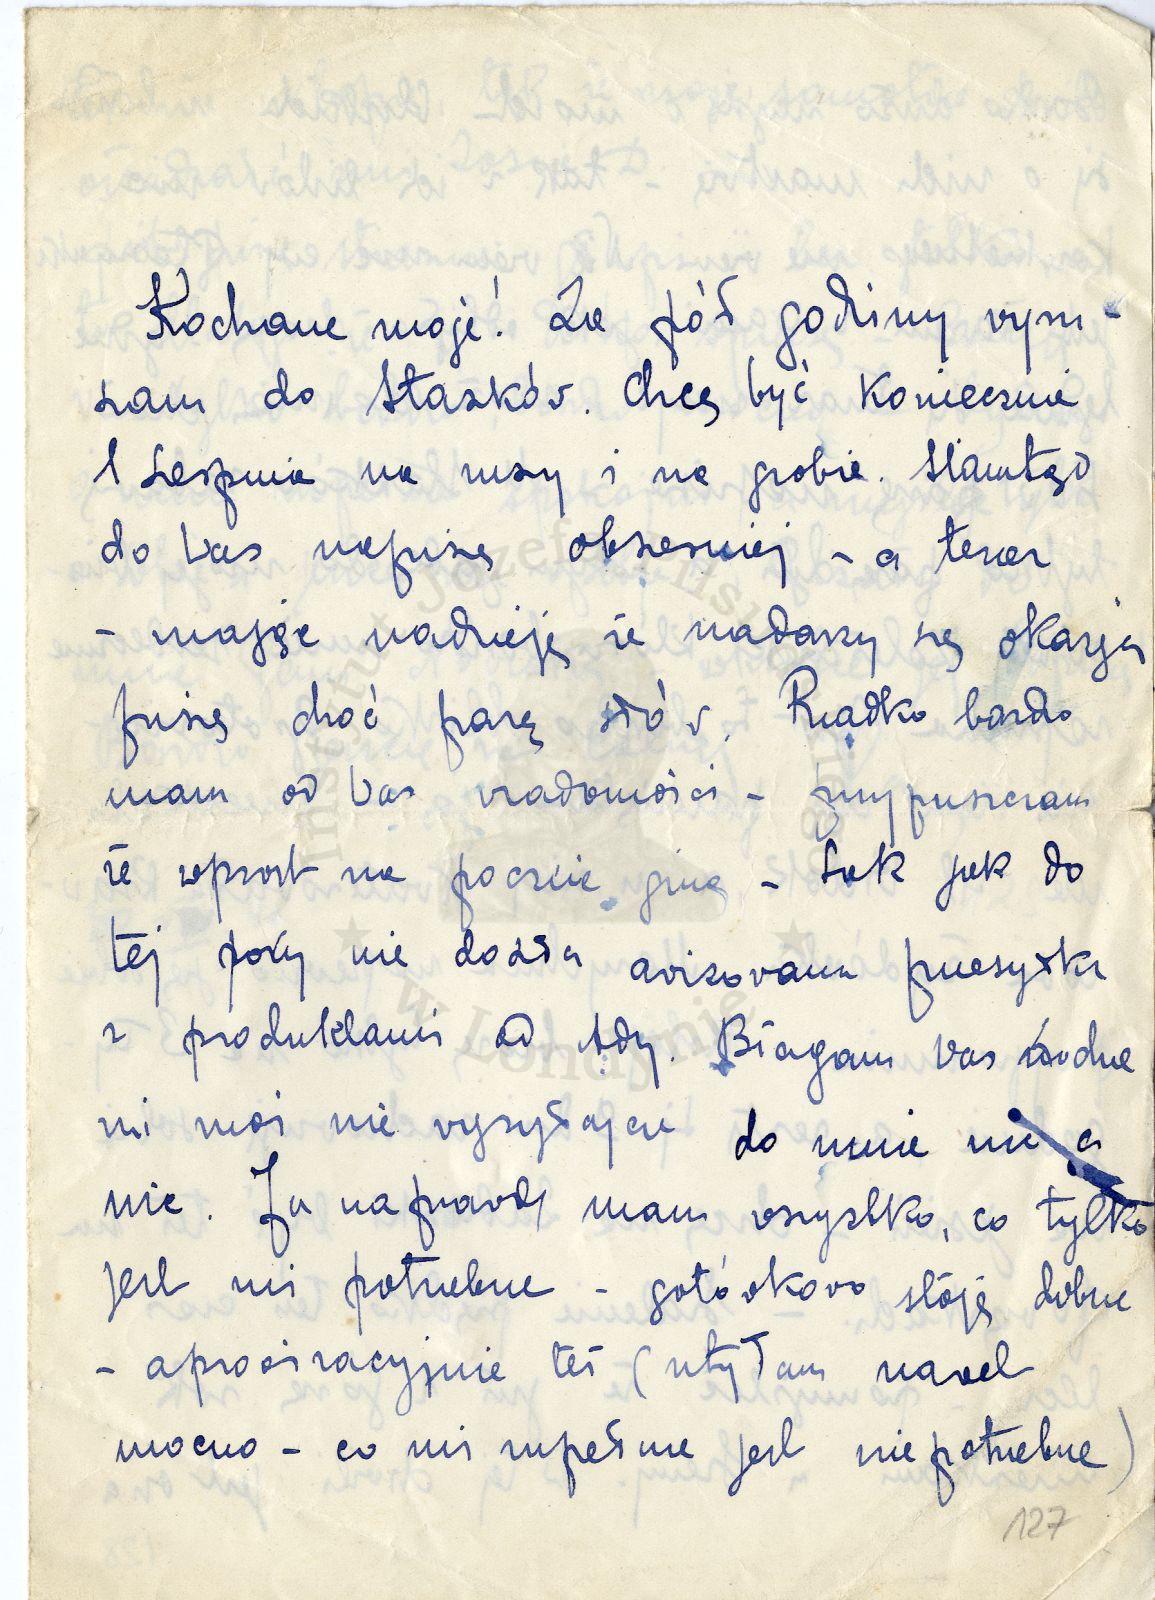 Kochane moje! Za pół godziny wyru-
szam do Staszków. Chcę być koniecznie
1 sierpnia na mszy i na grobie. Stamtąd
do Was napiszę obszerniej – a teraz
– mając nadzieję że nadarzy się okazja
piszę choć parę słów. Rzadko bardzo
mam od Was wiadomości – przypuszczam
że wprost na poczcie giną – tak jak do
tej pory nie doszła awizowana przesyłka
z produktami od Ady. Błagam Was
mi moi nie wysyłajcie do mnie nic a
nic. Ja naprawdę mam wszystko, co tylko
jest mi potrzebne – gotówkowo stoję dobrze
– aprowizacyjnie też (utyłam nawet
mocno – co mi zupełnie jest niepotrzebne)
127
Instytut Józefa Piłsudskiego
w Londynie